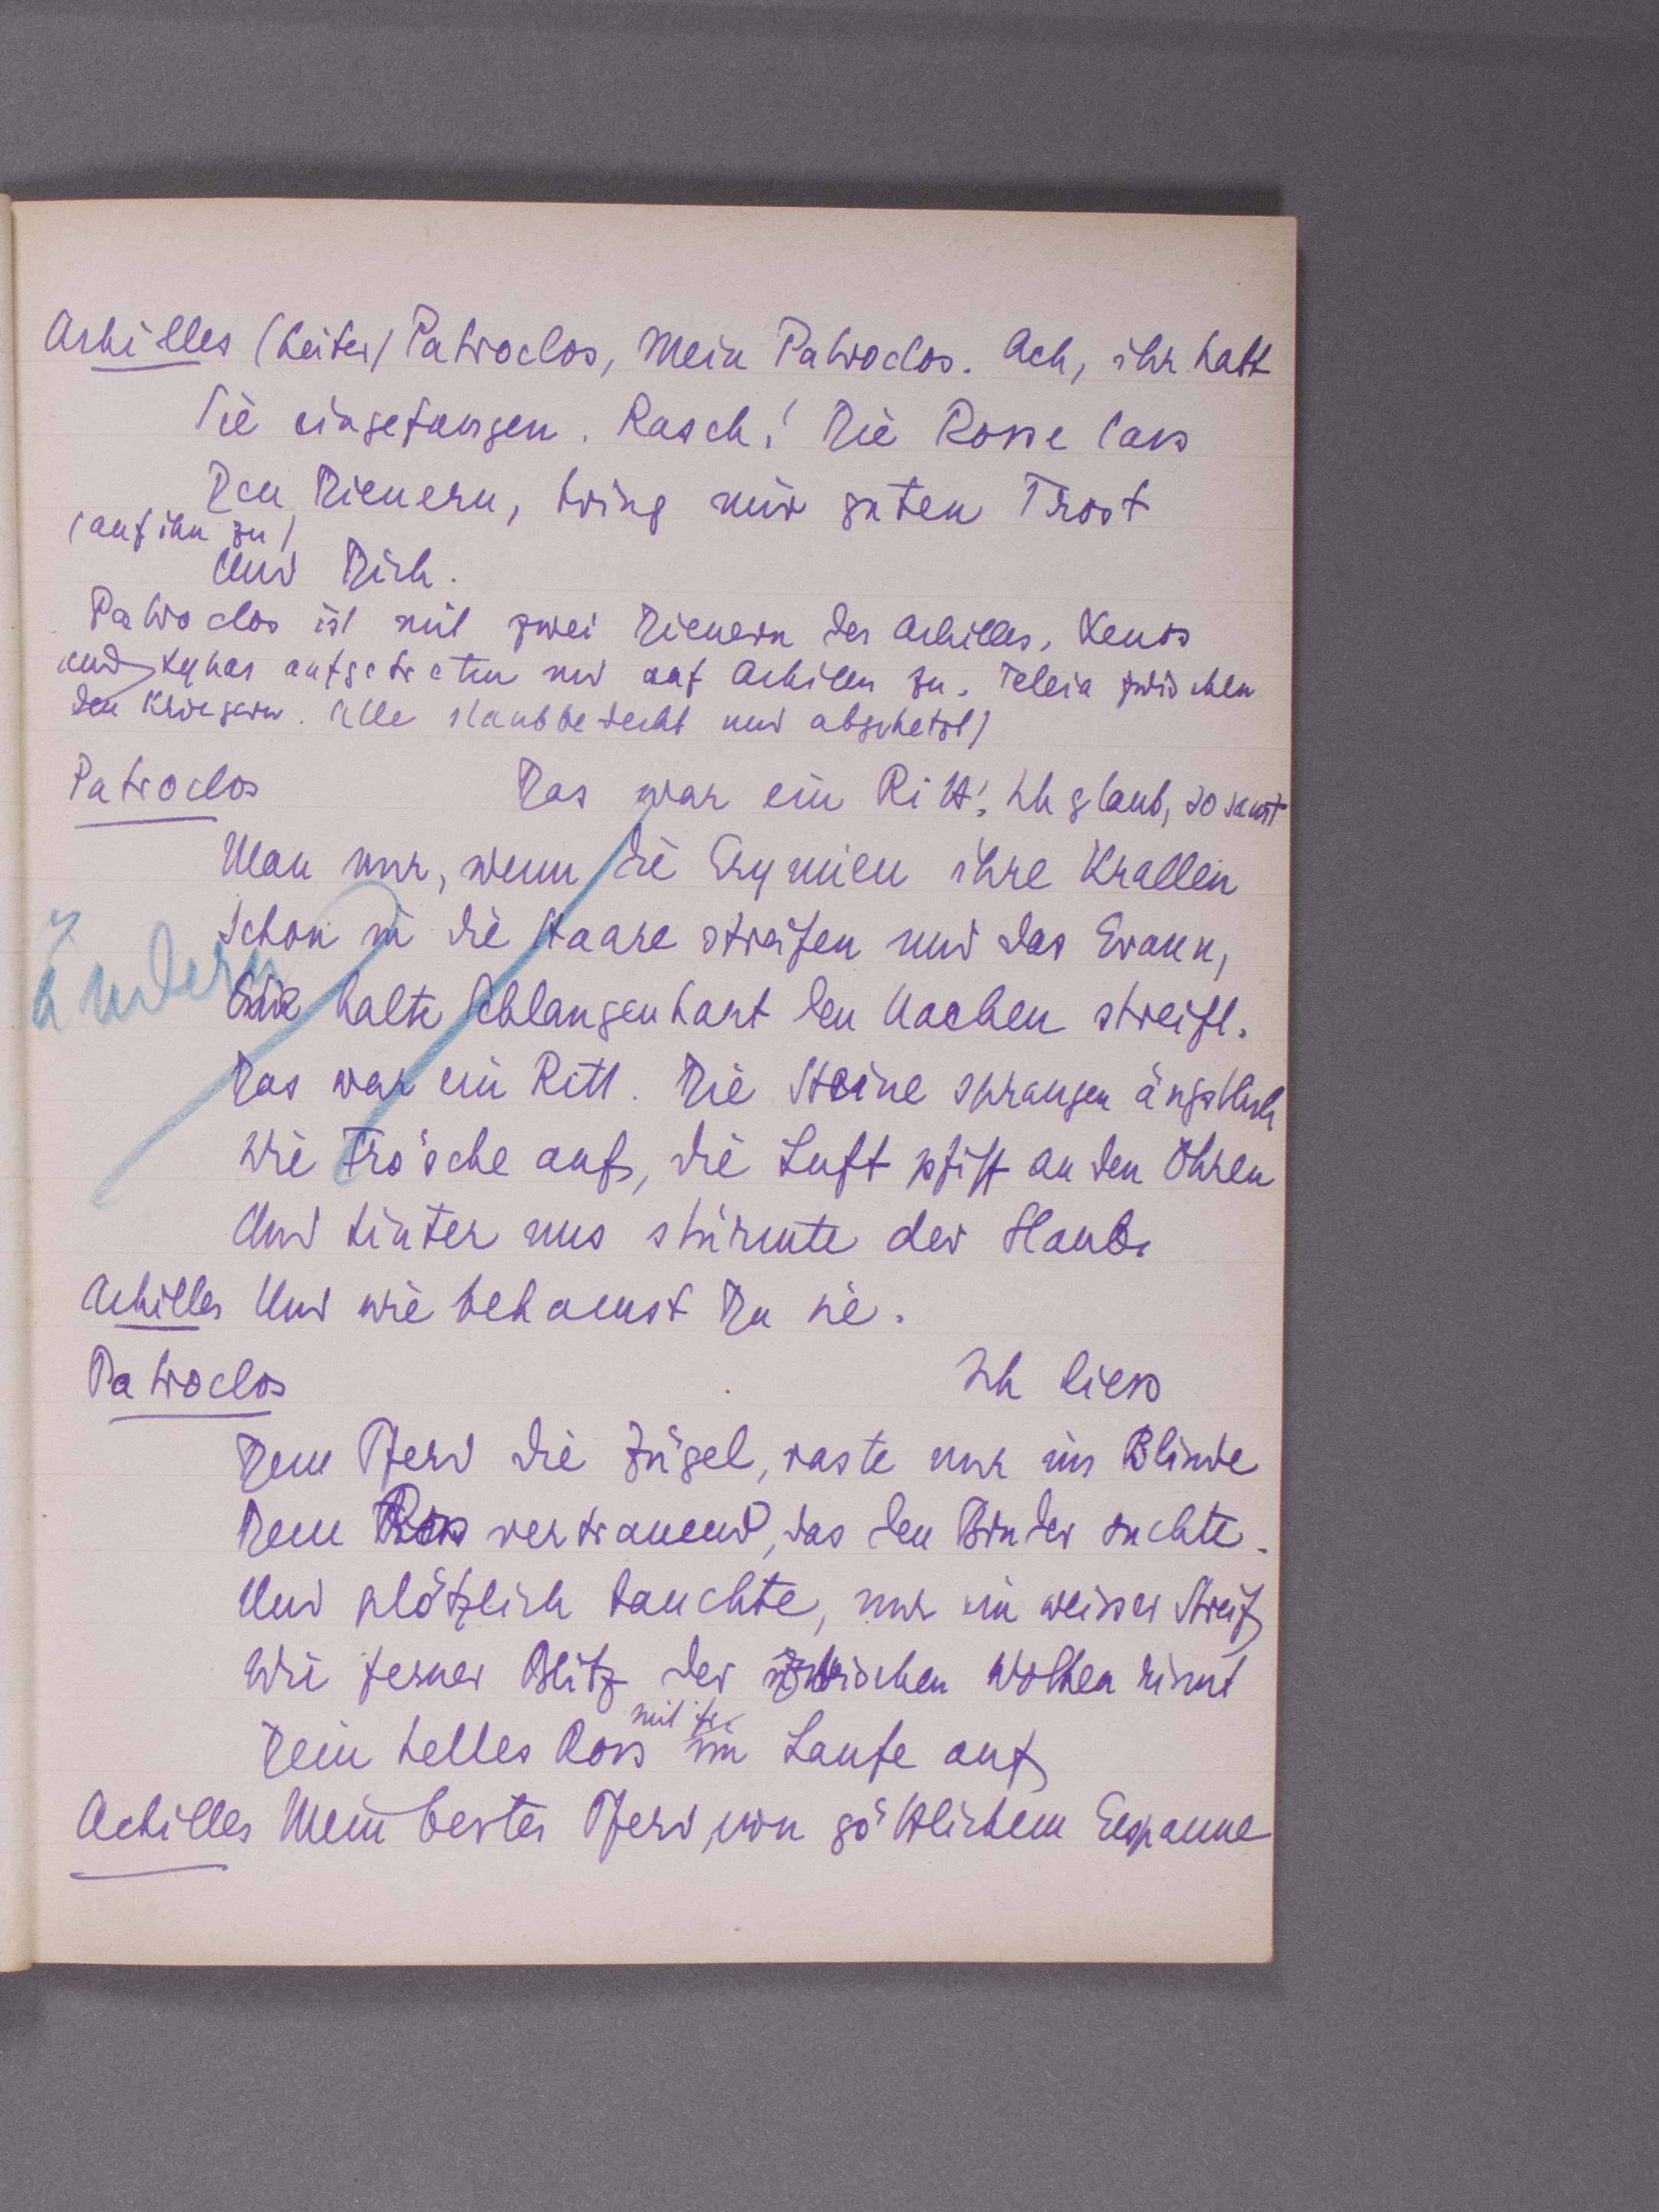 Achilles (heiter) Patroclos, Mein Patroclos. Ach, ihr habt
Sie eingefangen. Rasch! Die Rosse lass
Den Dienern, bring mir guten Trost
(auf ihn zu)
Und Dich.
Patroclos ist mit zwei Dienern des Achilles, Xenos
und aufgetreten und auf Achilles zu. Teleia zwischen
den Kriegern. Alle staubbedeckt und abgehetzt)
Patroclos Das war ein Ritt! Ich glaub, so saust
Man nur, wenn die Erynnien ihre Krallen
Schon in die Haare streifen und das Graun,
ändern
kalte Schlangenhaut den Nacken streift.
Das war ein Ritt. Die Steine sprangen ängstlich
Wie Frösche auf, die Luft pfiff an den Ohren
Und hinter uns stürmte der Staub.
Achilles Und wie bekamst Du sie.
Patroclos Ich liess
Dem Pferd die Zügel, raste nur ins Blinde
Dem Ross vertrauend, das den Bruder suchte.
Und plötzlich tauchte, nur ein weisser Streif
Wie ferner Blitz der zwischen Wolken rinnt
mit ihr
Dein helles Ross im Laufe auf
Achilles Mein bestes Pferd, von göttlichem Gespanne